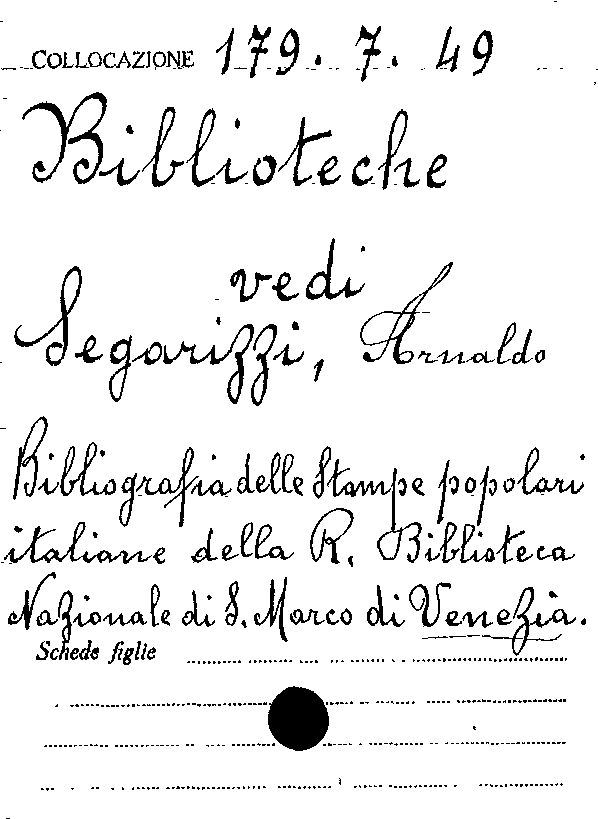 COLLOCAZIONE 179. 7. 49
Biblioteche
vedi
Segarizzi, Arnaldo
Bibliografia delle Stampe popolari
italiane della R. Biblioteca
Nazionale di S. Marco di Venezia.
Schede figlie